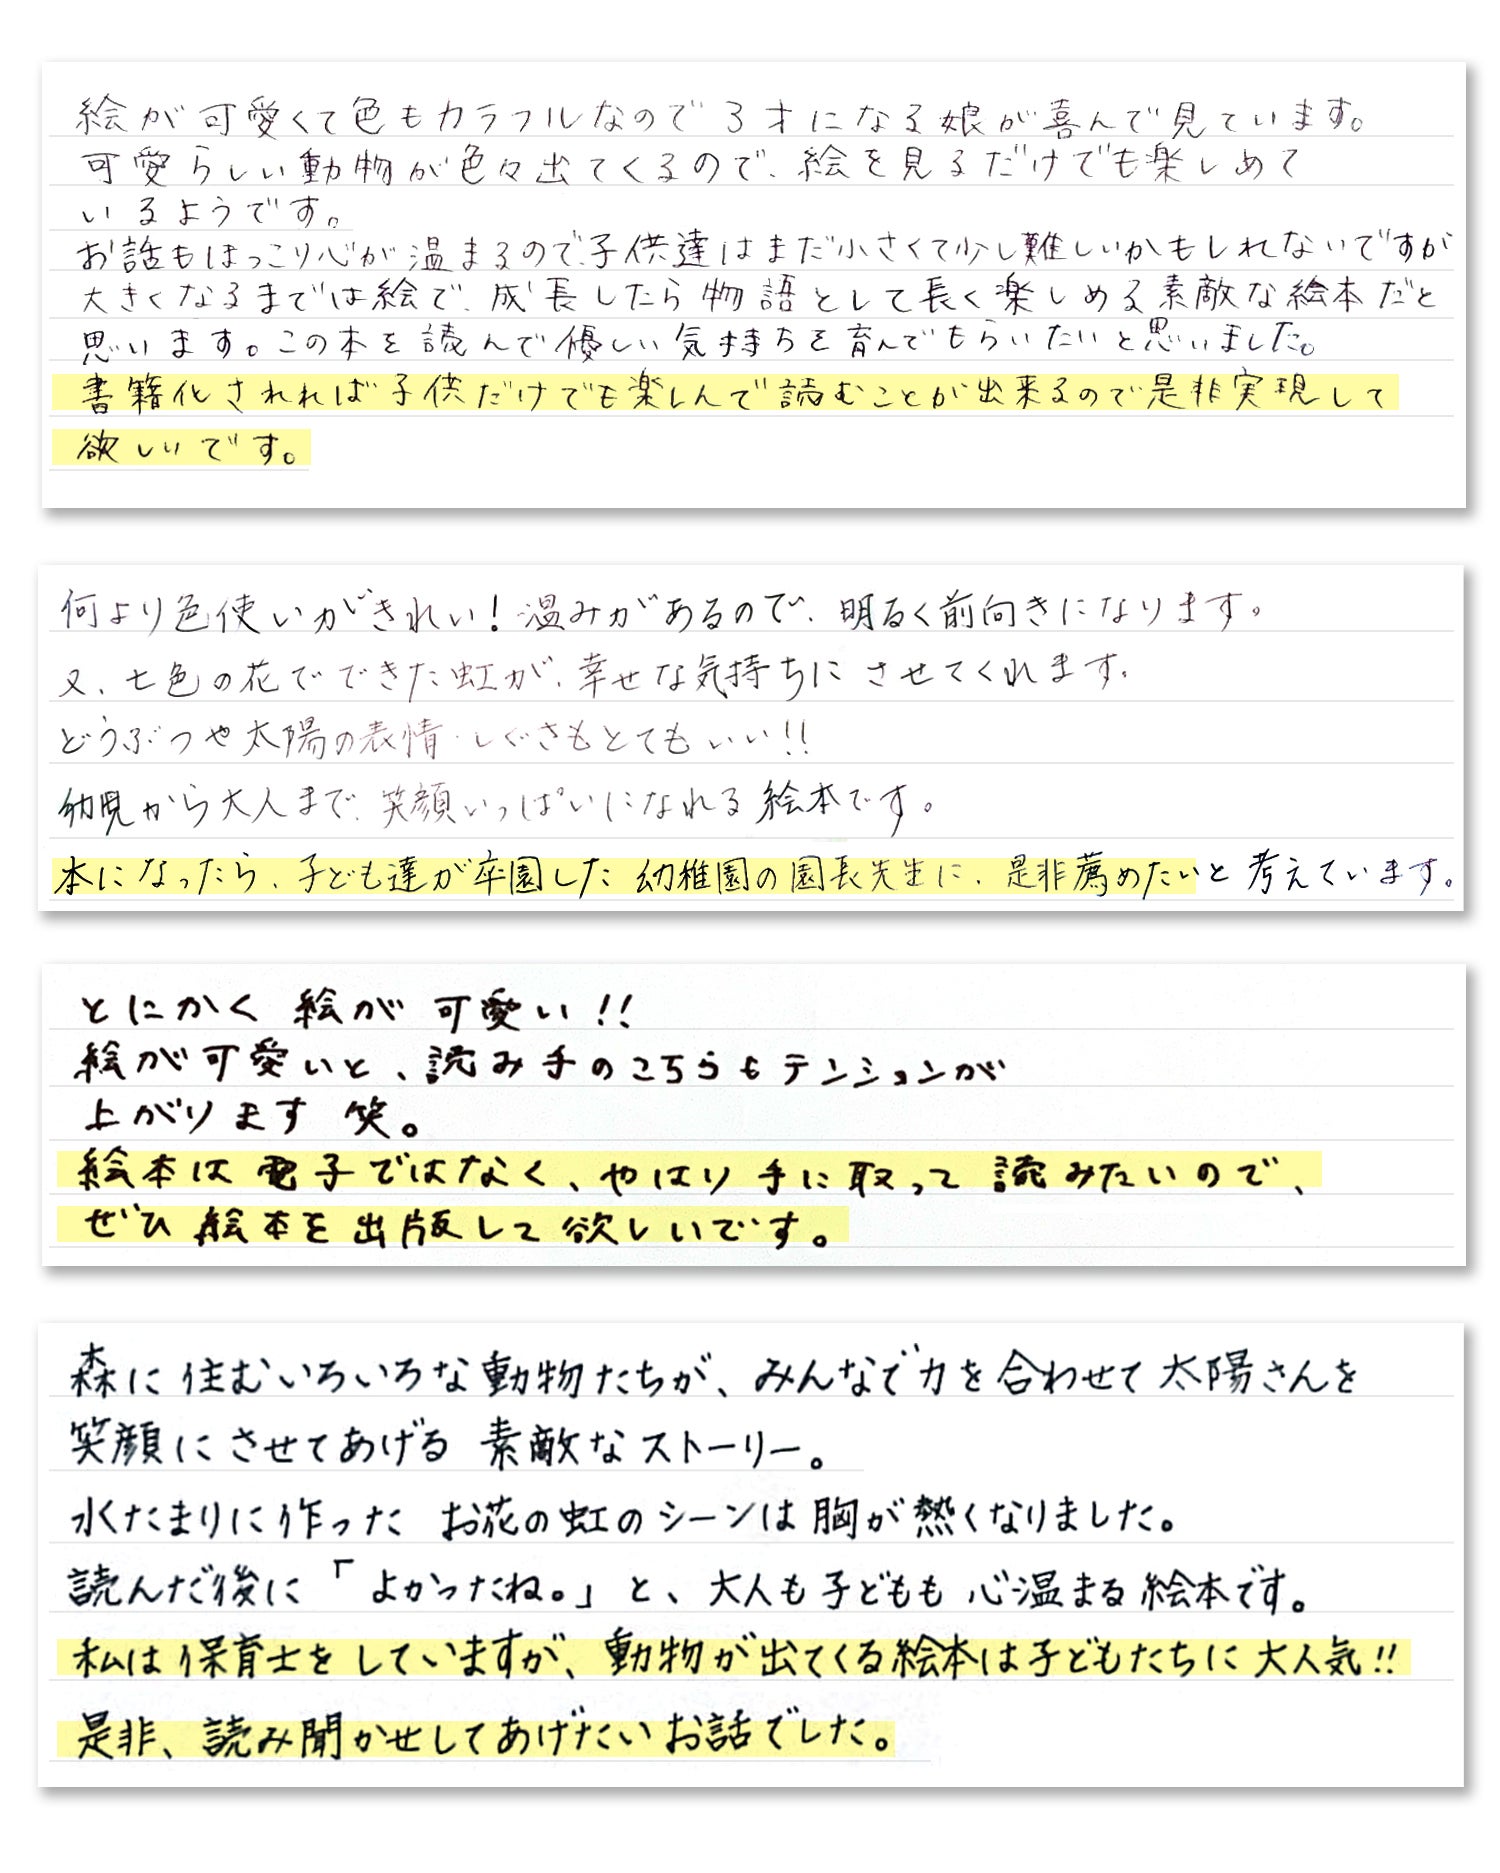 絵が可愛くて色もカラフルなので3才になる娘が喜んで見ています。
可愛らしい動物が色々出てくるので、絵を見るだけでも楽しめて
いるようです。
お話もほっこり心が温まるので、子供達はまだ小さくて少し難しいかもしれないですが
大きくなるまでは絵で、成長したら物語として長く楽しめる素敵な絵本だと
思います。この本を読んで優しい気持ちを育んでもらいたいと思いました。
書籍化されれば子供だけでも楽しんで読むことが出来るので是非実現して
欲しいです。
何より色使いがきれい！温みがあるので、明るく前向きになります。
又、七色の花でできた虹が、幸せな気持ちにさせてくれます。
どうぶつや太陽の表情・しぐさもとてもいい！！
幼児から大人まで、笑顔いっぱいになれる絵本です。
本になったら、子ども達が卒園した幼稚園の園長先生に、是非薦めたいと考えています。
とにかく 絵が 可愛い！！
絵が可愛いと、読み手のこちらもテンションが
上がります 笑。
絵本は電子ではなく、やはり手に取って読みたいので、
ぜひ絵本を出版して欲しいです。
森に住むいろいろな動物たちが、みんなで力を合わせて太陽さんを
笑顔にさせてあげる 素敵なストーリー。
水たまりに作った お花の虹のシーンは胸が熱くなりました。
読んだ後に「よかったね。」と、大人も子どもも心温まる絵本です。
私は保育士をしていますが、動物が出てくる絵本は子どもたちに大人気！！
是非、読み聞かせしてあげたいお話でした。